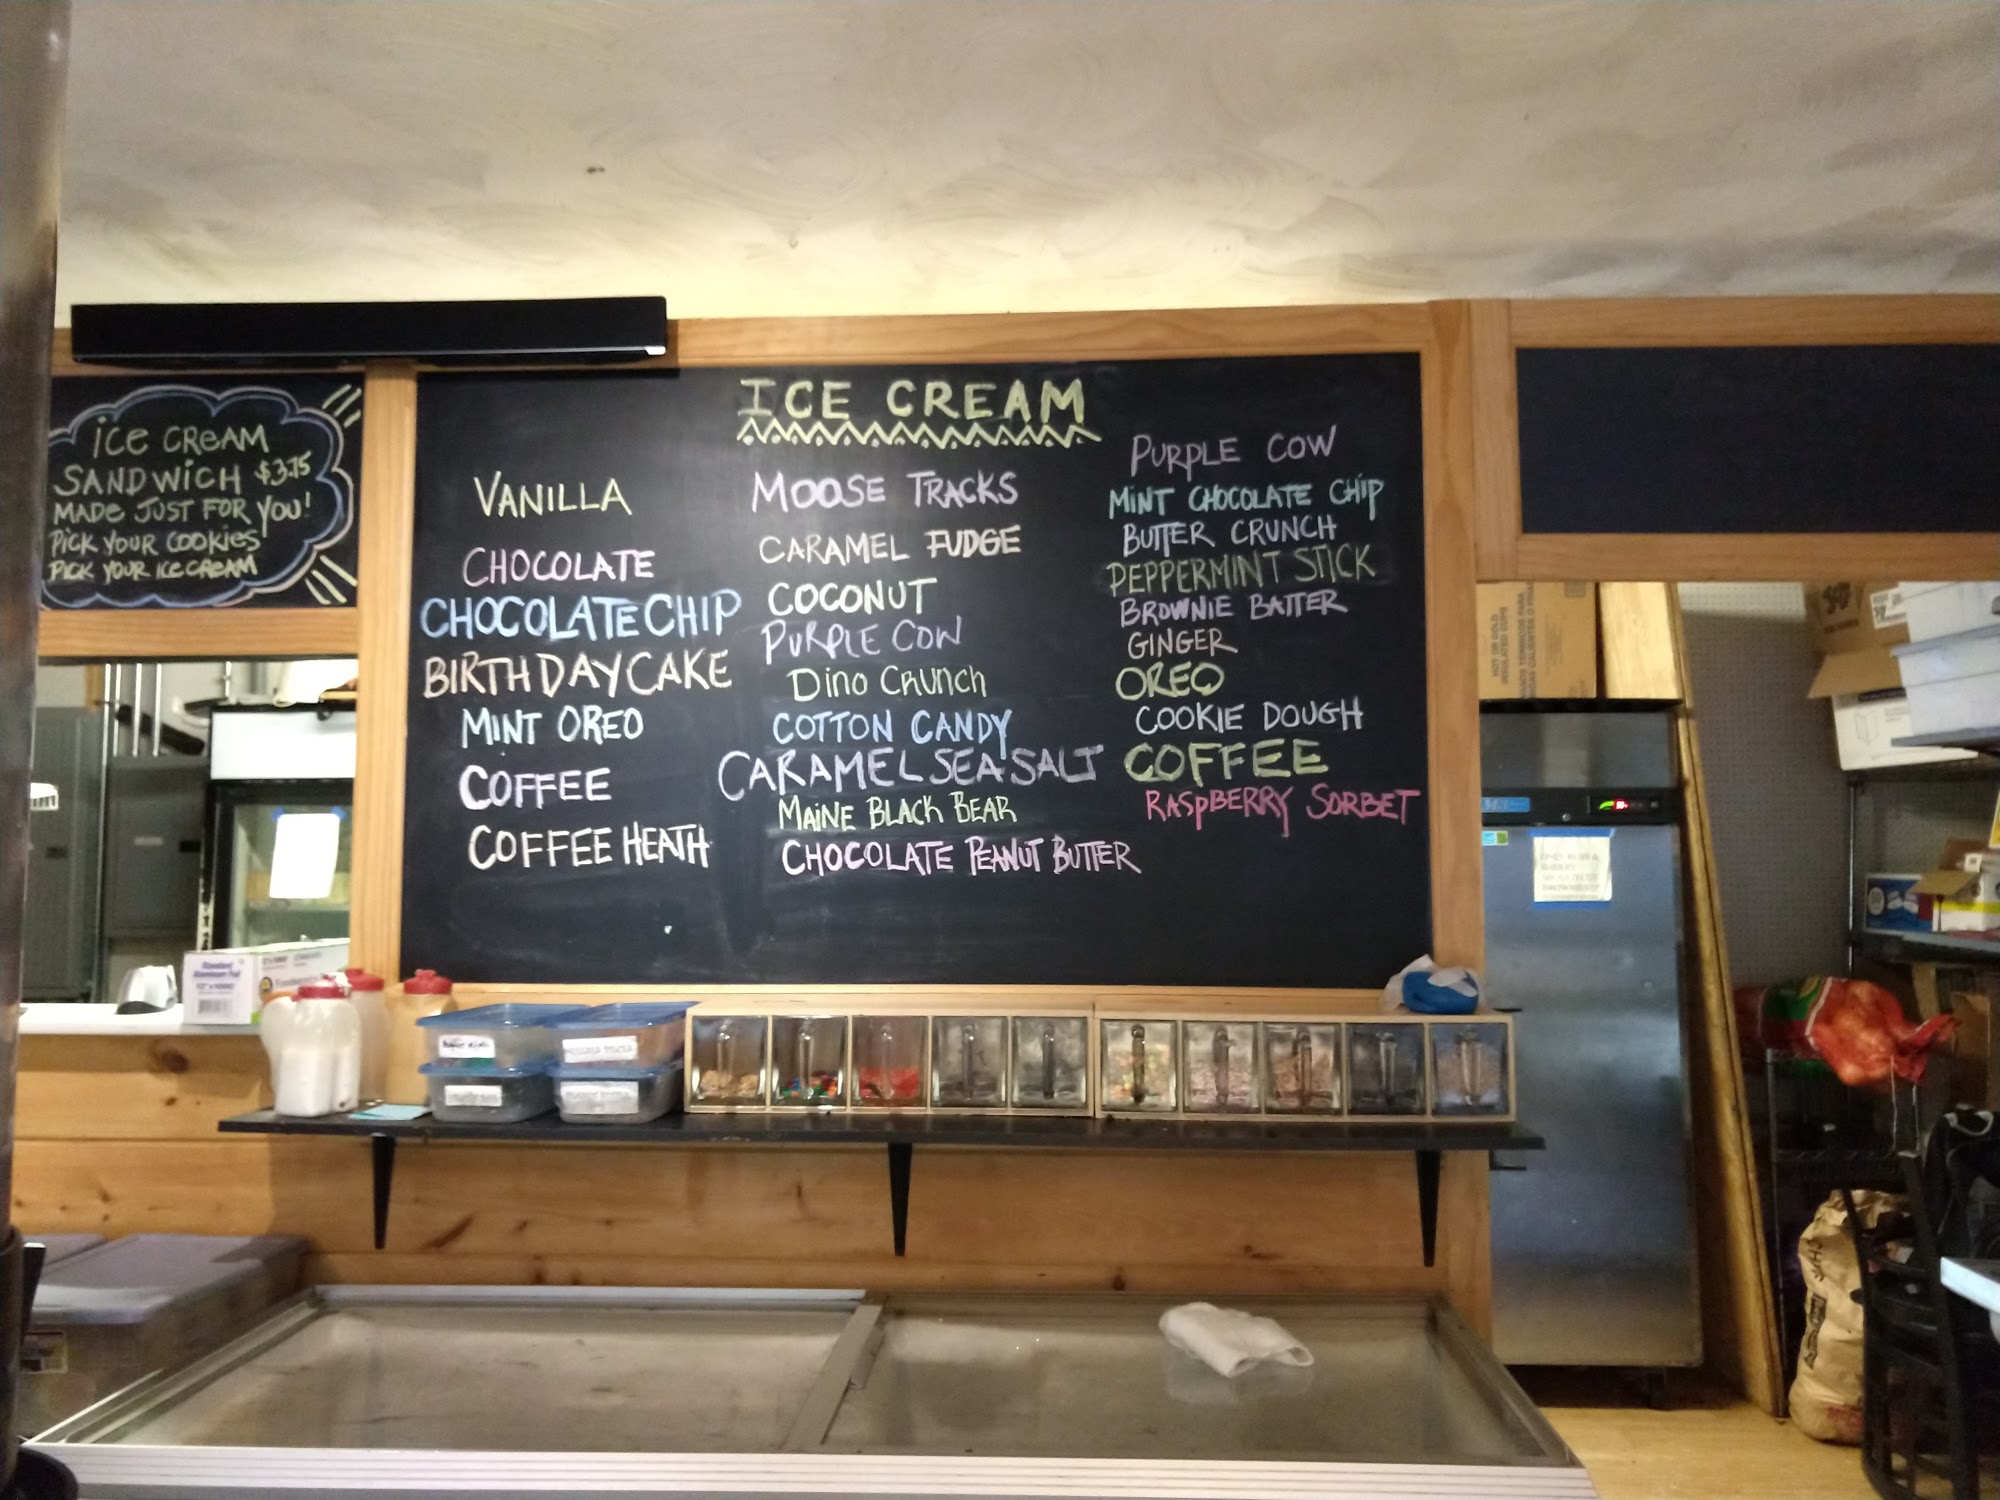 ICE CREAM
SANDWICH $3.75
MADE JUST FOR YOU!
PICK YOUR COOKIES
PICK YOUR ICE CREAM
ICE CREAM
VANILLA
CHOCOLATE
CHOCOLATE CHIP
BIRTHDAY CAKE
MINT OREO
COFFEE
COFFEE HEATH
MOOSE TRACKS
CARAMEL FUDGE
COCONUT
PURPLE COW
DINO CRUNCH
COTTON CANDY
CARAMEL SEA SALT
MAINE BLACK BEAR
CHOCOLATE PEANUT BUTTER
PURPLE COW
MINT CHOCOLATE CHIP
BUTTER CRUNCH
PEPPERMINT STICK
BROWNIE BATTER
GINGER
OREO
COOKIE DOUGH
COFFEE
RASPBERRY SORBET
Standard
Aluminum Foil
12" x 1000'
HOT OR COLD
INSULATED CUPS